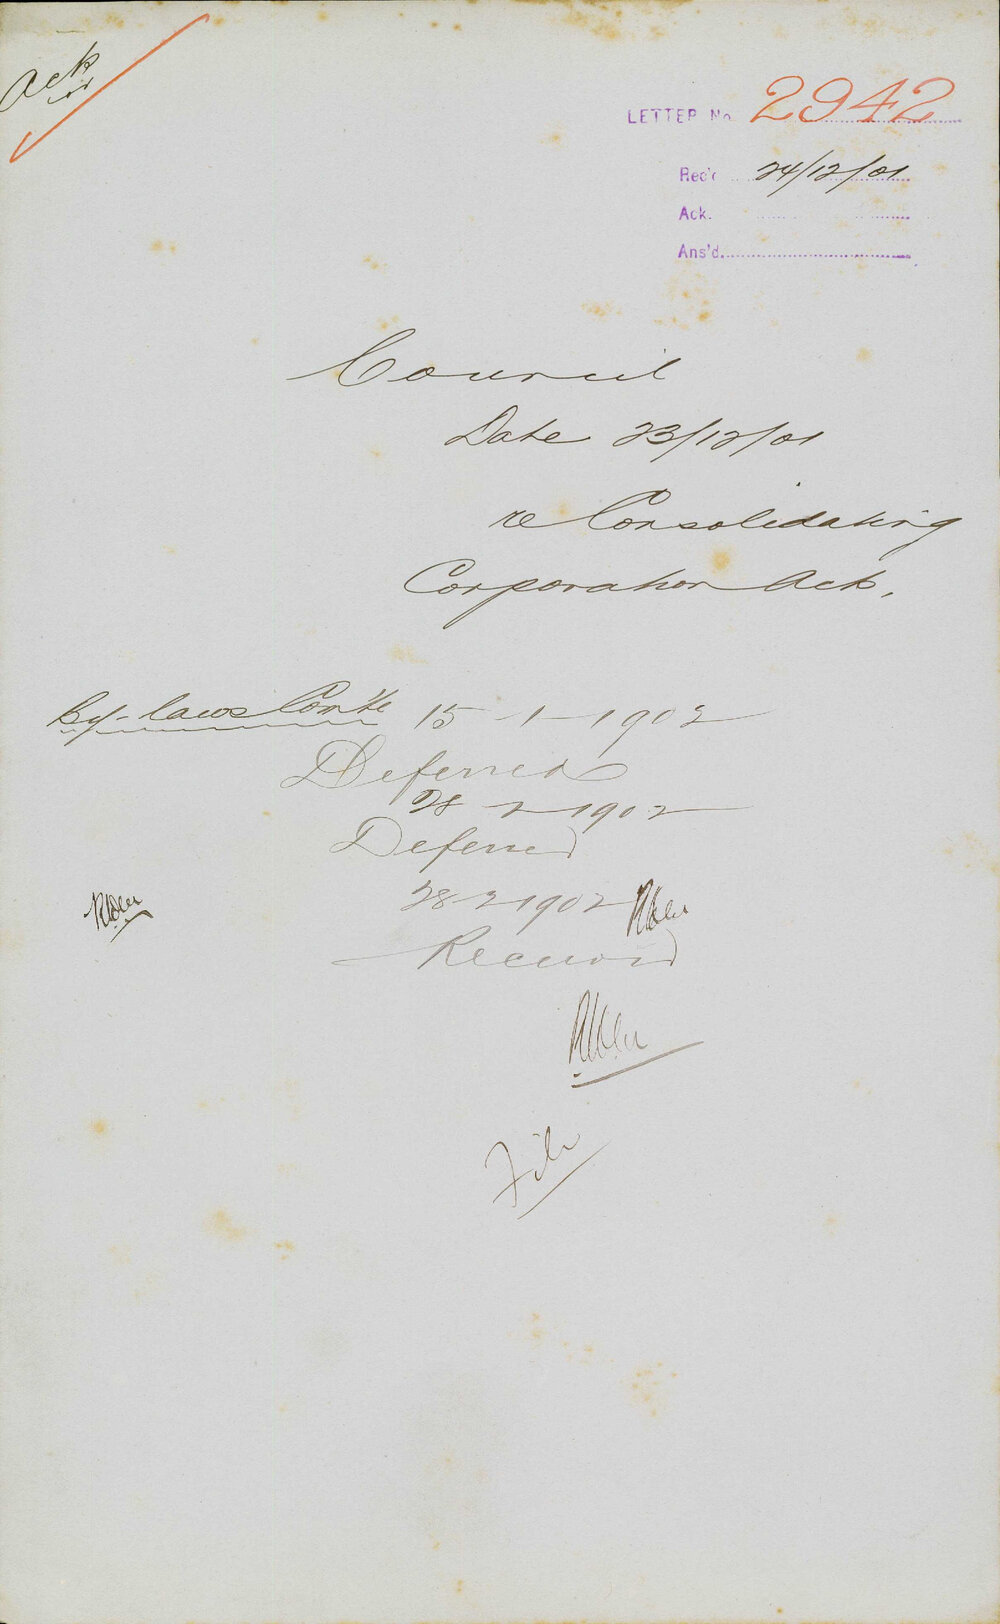 Ack
LETTER No 2942
Rec'd 24/12/01
Ack.
Ans'd
Council
Date 23/12/01
re Consolidating
Corporation Acts.
By-laws Com'tte 15-1-1902
Deferred
28-2-1902
Deferred
28-2-1902
Received
File